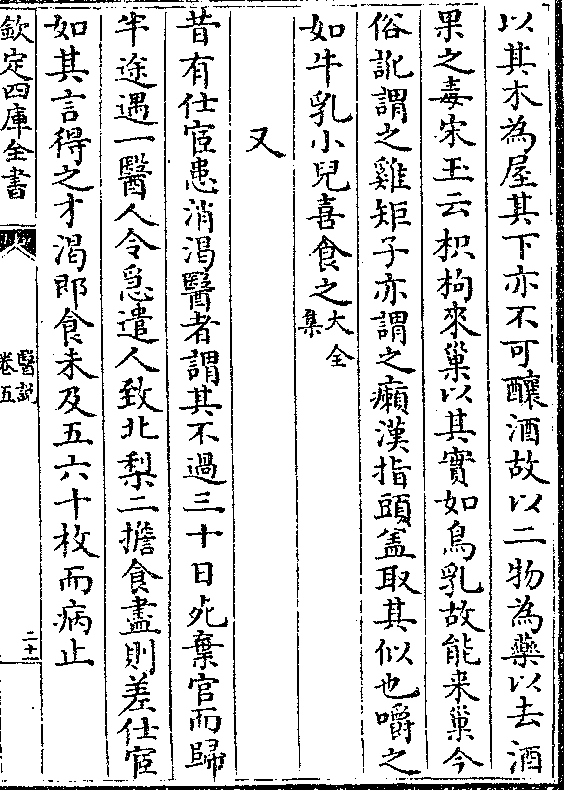 以其木為屋其下亦不可釀酒故以二物為藥以去酒
果之毒宋玉云枳枸來巢以其實如鳥乳故能来巢今
俗訛謂之雞矩子亦謂之癩漢指頭盖取其似也嚼之
如牛乳小兒喜食之大全集
又
昔有仕宦患消渴醫者謂其不過三十日死棄官而歸
半途遇一醫人令急遣人致北梨二擔食盡則差仕宦
如其言得之才渴即食未及五六十枚而病止
欽定四庫全書
醫說
卷五
二十一